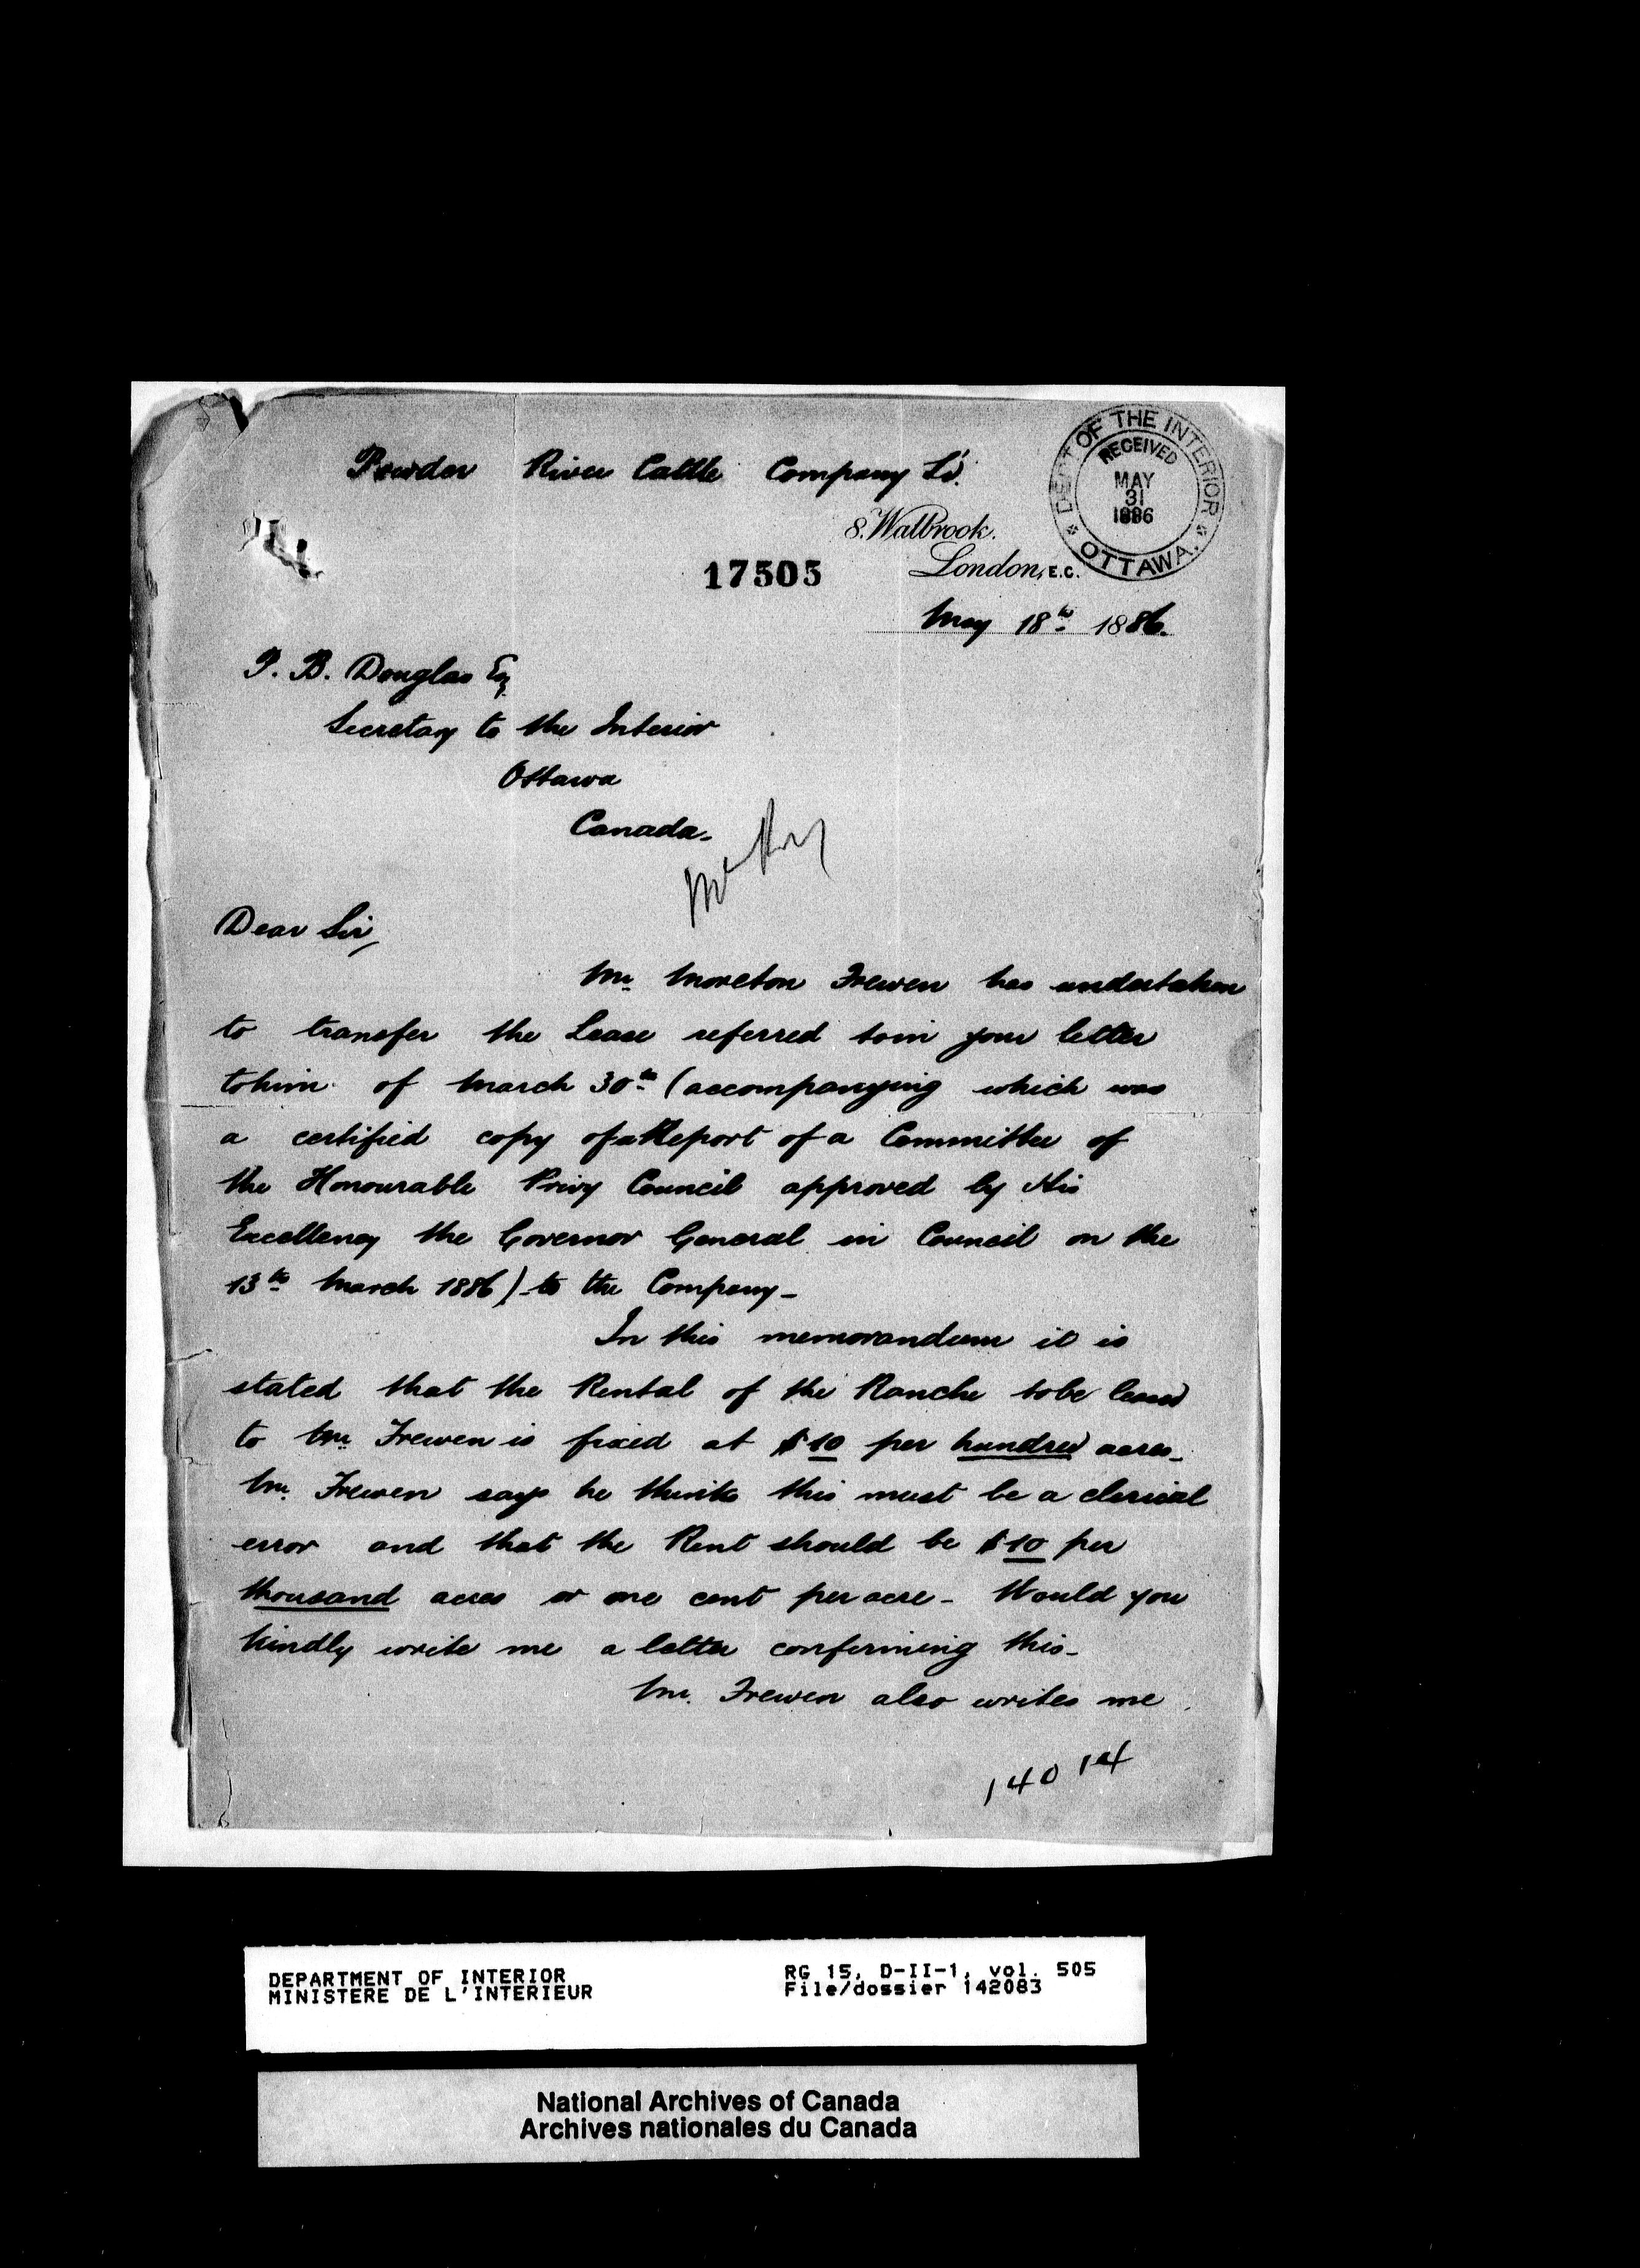 Powder River Cattle Company Ld.
DEPT OF THE INTERIOR
RECEIVED
MAY
31
1886
OTTAWA.
8. Walbrook.
London, E.C.
17505
May 18th 1886.
P. B. Douglas Esq
Secretary to the Interior
Ottawa
Canada.
Dear Sir,
Mr. Moreton Frewen has undertaken
to transfer the Lease referred to in your letter
to him of March 30th (accompanying which was
a certified copy of a Report of a Committee of
the Honourable Privy Council approved by His
Excellency the Governor General in Council on the
13th March 1886) to the Company_
In this memorandum it is
stated that the Rental of the Ranche to be leased
to Mr. Frewen is fixed at $10 per hundred acres_
Mr. Frewen says he thinks this must be a clerical
error and that the Rent should be $10 per
thousand acres or one cent per acre_ Would you
kindly write me a letter confirming this_
Mr. Frewen also writes me
14014
DEPARTMENT OF INTERIOR
MINISTERE DE L'INTERIEUR
RG 15, D-II-1, vol. 505
File/dossier 142083
National Archives of Canada
Archives nationales du Canada